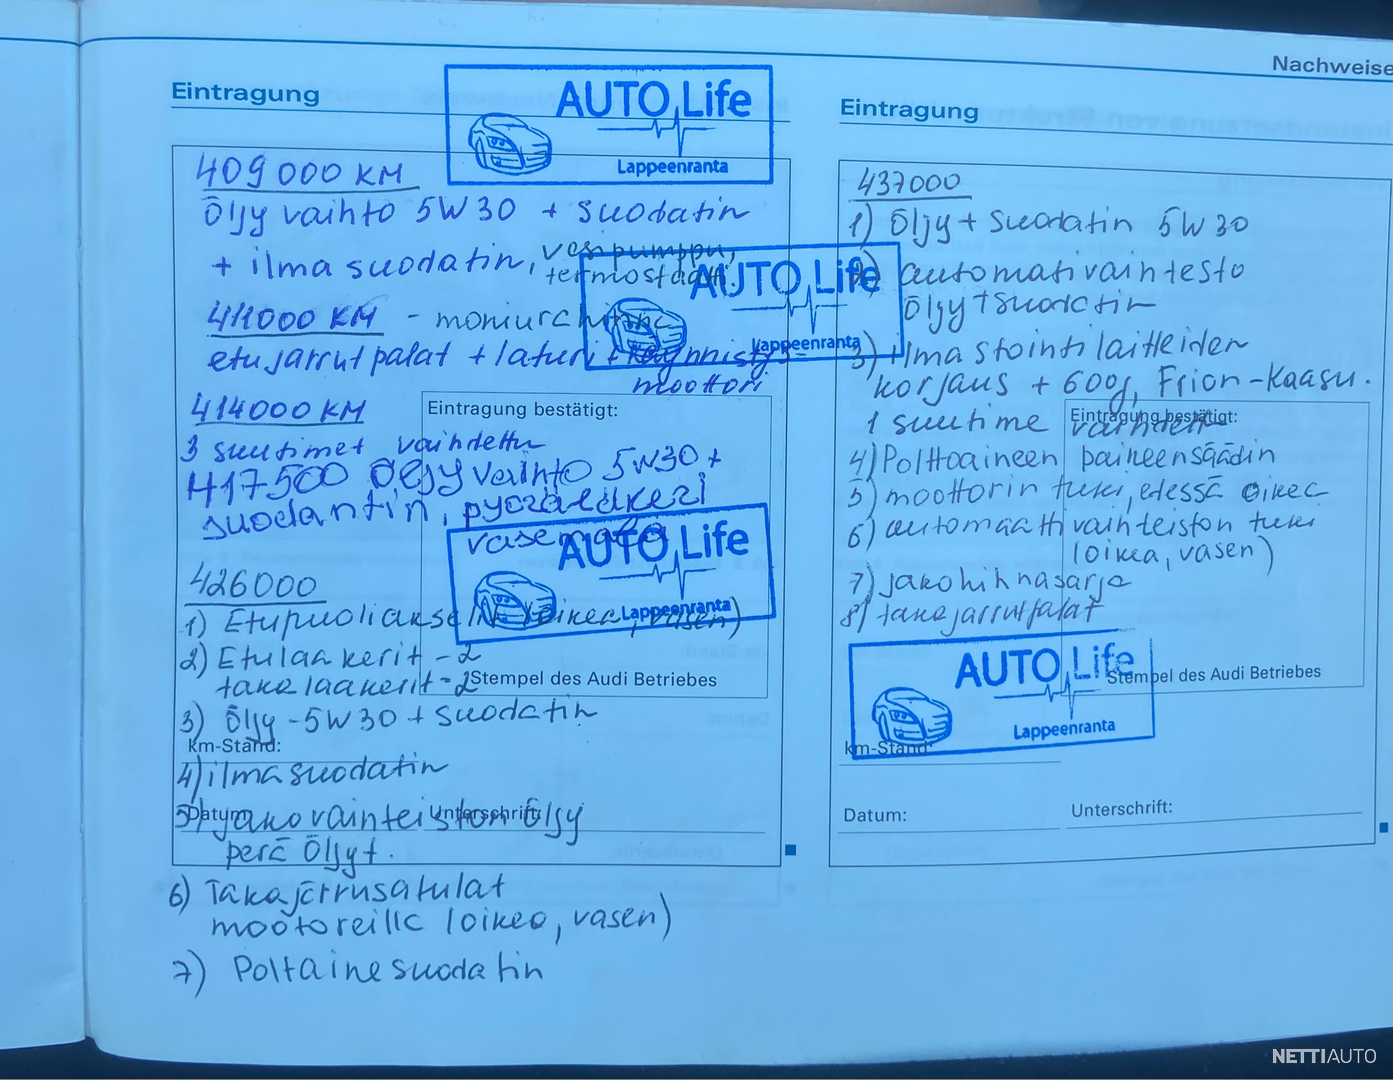 Nachweise
Eintragung
AUTO Life
Lappeenranta
409 000 KM
Öljy vaihto 5W30 + suodatin
+ ilma suodatin, vesipumppu,
termostaatti.
AUTO Life
Lappeenranta
411000 KM - moniurahihna
etujarrut palat + laturi + käynnistys-
moottori
414000 KM
Eintragung bestätigt:
3 suutimet vaihdettu
417500 Öljy vaihto 5W30 +
suodantin, pyörälakeri
vasemalla
AUTO Life
Lappeenranta
426000
1) Etupuoliakselit (oikea, vasen)
2) Etulaakerit - 2
takalaakerit - 2
Stempel des Audi Betriebes
3) Öljy - 5W30 + suodatin
km-Stand:
4) ilmasuodatin
Datum:
Unterschrift:
5) jakovainteiston Öljy
perä Öljyt.
6) Takajärrusatulat
mootoreilla (oikea, vasen)
7) Poltainesuodatin
Eintragung
437000
1) Öljy + suodatin 5W30
2) automativaintesto
Öljy + suodatin
3) ilmastointilaitteiden
korjaus + 600g, Frion-Kaasu.
1 suutime vaihdettu
Eintragung bestätigt:
4) Polttoaineen paineensäädin
5) moottorin tuki, edessä oikea
6) automaatti vainteiston tuki
(oikea, vasen)
7) jakohihnasarja
8) takajarrutpalat
AUTO Life
Lappeenranta
Stempel des Audi Betriebes
km-Stand:
Datum:
Unterschrift:
NETTIAUTO